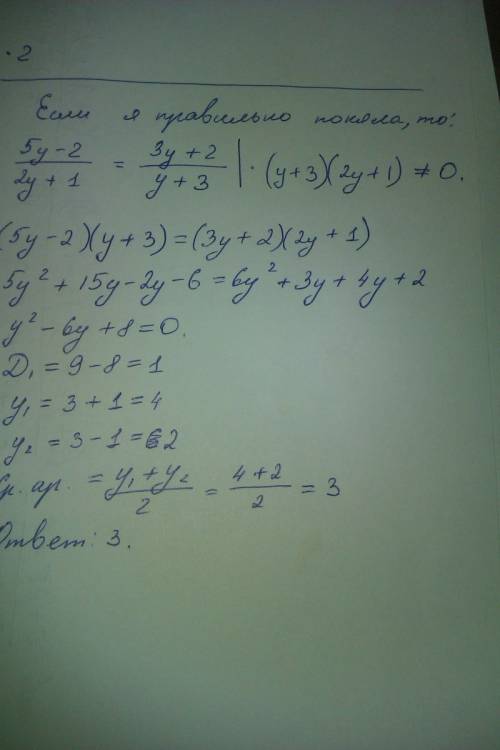 · 2
Если я правильно поняла, то:
(5y-2)/(2y+1) = (3y+2)/(y+3) | · (y+3)(2y+1) ≠ 0.
(5y-2)(y+3) = (3y+2)(2y+1)
5y² + 15y - 2y - 6 = 6y² + 3y + 4y + 2
y² - 6y + 8 = 0.
D₁ = 9 - 8 = 1
y₁ = 3 + 1 = 4
y₂ = 3 - 1 = 2
Ср. ар. = (y₁ + y₂)/2 = (4+2)/2 = 3
Ответ: 3.